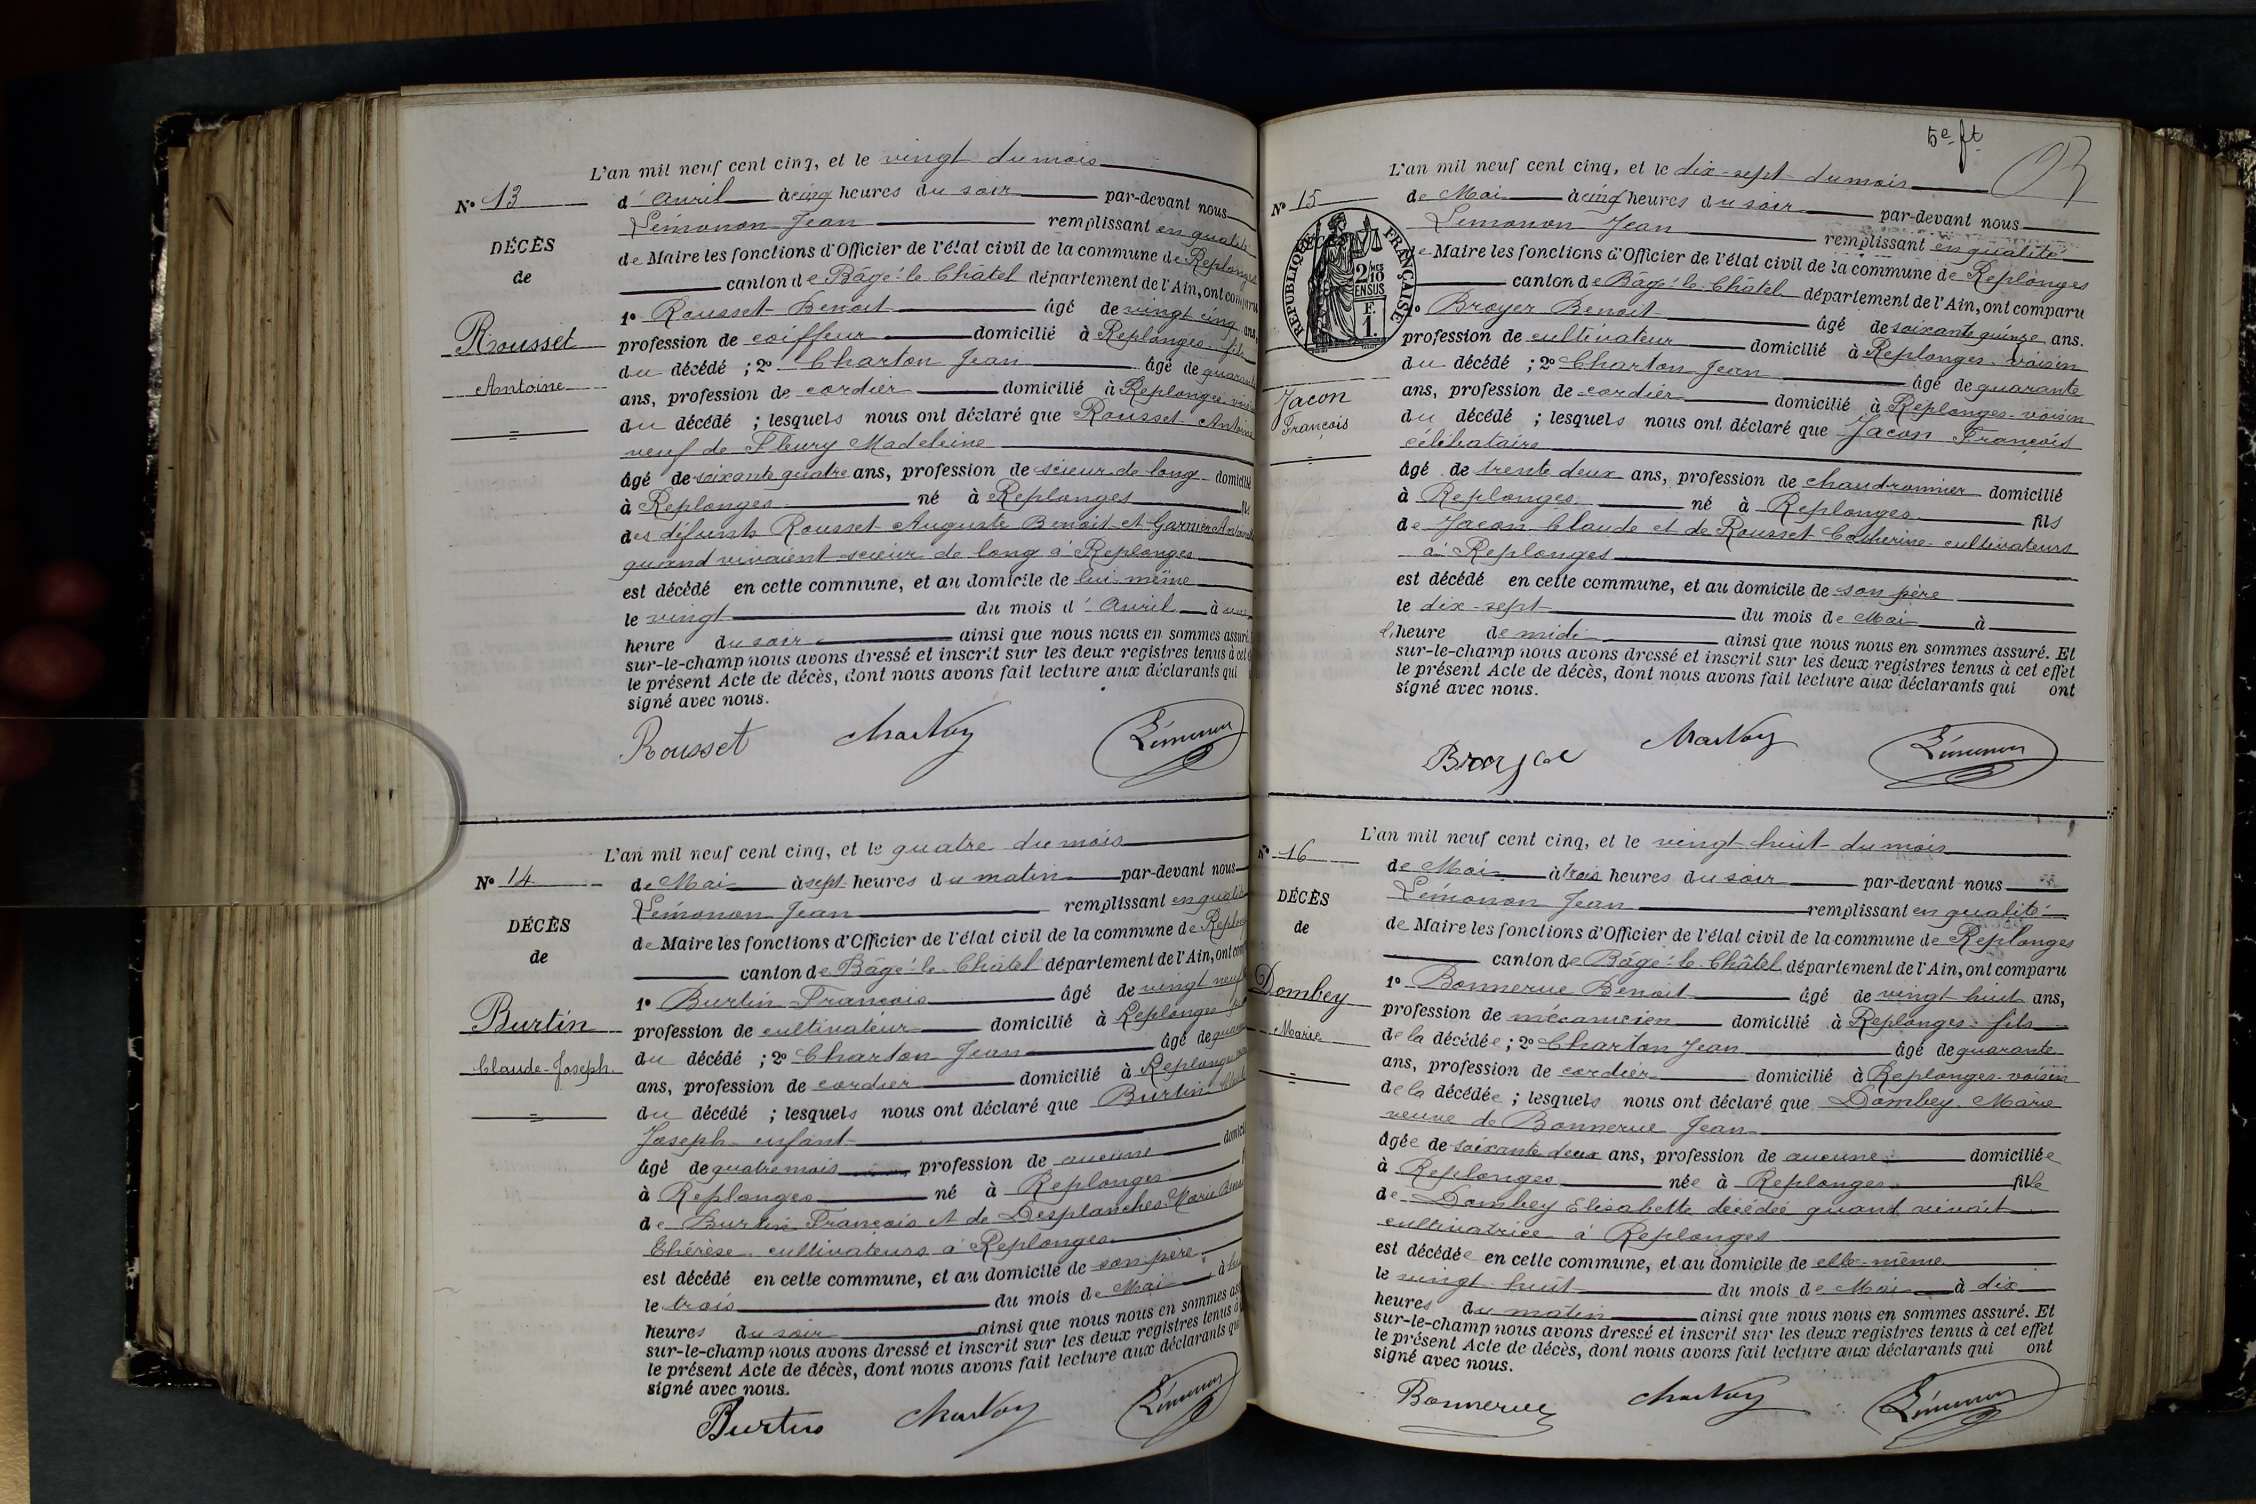 L'an mil neuf cent cinq, et le vingt du mois
N° 13
d'Avril à cinq heures du soir par-devant nous
Lémonon Jean remplissant en qualité
DÉCÈS
de Maire les fonctions d'Officier de l'état civil de la commune de Replonges
de
canton de Bâgé-le-Châtel département de l'Ain, ont comparu
1° Rousset Benoit âgé de vingt cinq ans,
Rousset
profession de coiffeur domicilié à Replonges fils
du décédé ; 2° Charton Jean âgé de quarante
Antoine
ans, profession de cordier domicilié à Replonges
du décédé ; lesquels nous ont déclaré que Rousset Antoine
veuf de Fleury Madeleine
âgé de soixante quatre ans, profession de scieur de long domicilié
à Replonges né à Replonges fils
des défunts Rousset Auguste Benoit et Garnier
quand vivaient scieur de long à Replonges
est décédé en cette commune, et au domicile de lui-même
le vingt du mois d'Avril à une
heure du soir ainsi que nous nous en sommes assuré.
sur-le-champ nous avons dressé et inscrit sur les deux registres tenus à cet
le présent Acte de décès, dont nous avons fait lecture aux déclarants qui
signé avec nous.
Rousset Charton Lémonon
L'an mil neuf cent cinq, et le quatre du mois
N° 14
de Mai à sept heures du matin par-devant nous
Lémonon Jean remplissant en qualité
DÉCÈS
de Maire les fonctions d'Officier de l'état civil de la commune de Replonges
de
canton de Bâgé-le-Châtel département de l'Ain, ont
1° Burtin François âgé de vingt neuf
Burtin
profession de cultivateur domicilié à Replonges
du décédé ; 2° Charton Jean âgé de quarante
Claude-Joseph
ans, profession de cordier domicilié à Replonges
du décédé ; lesquels nous ont déclaré que Burtin
Joseph enfant
âgé de quatre mois profession de aucune
à Replonges né à Replonges
de Burtin François et de Desplanches Marie
Thérèse cultivateurs à Replonges
est décédé en cette commune, et au domicile de son père
le trois du mois de Mai à
heures du soir ainsi que nous nous en sommes
sur-le-champ nous avons dressé et inscrit sur les deux registres tenus à
le présent Acte de décès, dont nous avons fait lecture aux déclarants qui
signé avec nous.
Burtin Charton Lémonon
5e ft
L'an mil neuf cent cinq, et le dix-sept du mois
N° 15
de Mai à cinq heures du soir par-devant nous
Lémonon Jean remplissant en qualité
de Maire les fonctions d'Officier de l'état civil de la commune de Replonges
canton de Bâgé-le-Châtel département de l'Ain, ont comparu
RÉPUBLIQUE FRANÇAISE
2 MES 10
EN SUS
F.
1.
1° Broyer Benoit âgé de soixante quinze ans.
profession de cultivateur domicilié à Replonges voisin
du décédé ; 2° Charton Jean âgé de quarante
ans, profession de cordier domicilié à Replonges-voisin
Jacon
François
du décédé ; lesquels nous ont déclaré que Jacon François
célibataire
âgé de trente deux ans, profession de chaudronnier domicilié
à Replonges né à Replonges fils
de Jacon Claude et de Rousset Catherine cultivateurs
à Replonges
est décédé en cette commune, et au domicile de son père
le dix-sept du mois de Mai à
l'heure de midi ainsi que nous nous en sommes assuré. Et
sur-le-champ nous avons dressé et inscrit sur les deux registres tenus à cet effet
le présent Acte de décès, dont nous avons fait lecture aux déclarants qui ont
signé avec nous.
Broyer Charton Lémonon
L'an mil neuf cent cinq, et le vingt huit du mois
N° 16
de Mai à trois heures du soir par-devant nous
Lémonon Jean remplissant en qualité
DÉCÈS
de Maire les fonctions d'Officier de l'état civil de la commune de Replonges
de
canton de Bâgé-le-Châtel département de l'Ain, ont comparu
1° Bonnerue Benoit âgé de vingt huit ans,
Dombey
profession de mécanicien domicilié à Replonges fils
Marie
de la décédée ; 2° Charton Jean âgé de quarante
ans, profession de cordier domicilié à Replonges-voisin
de la décédée ; lesquels nous ont déclaré que Dombey Marie
veuve de Bonnerue Jean
âgée de soixante deux ans, profession de aucune domiciliée
à Replonges née à Replonges fille
de Dombey Elisabette décédée quand vivait
cultivatrice à Replonges
est décédée en cette commune, et au domicile de elle-même
le vingt huit du mois de Mai à dix
heures du matin ainsi que nous nous en sommes assuré. Et
sur-le-champ nous avons dressé et inscrit sur les deux registres tenus à cet effet
le présent Acte de décès, dont nous avons fait lecture aux déclarants qui ont
signé avec nous.
Bonnerue Charton Lémonon